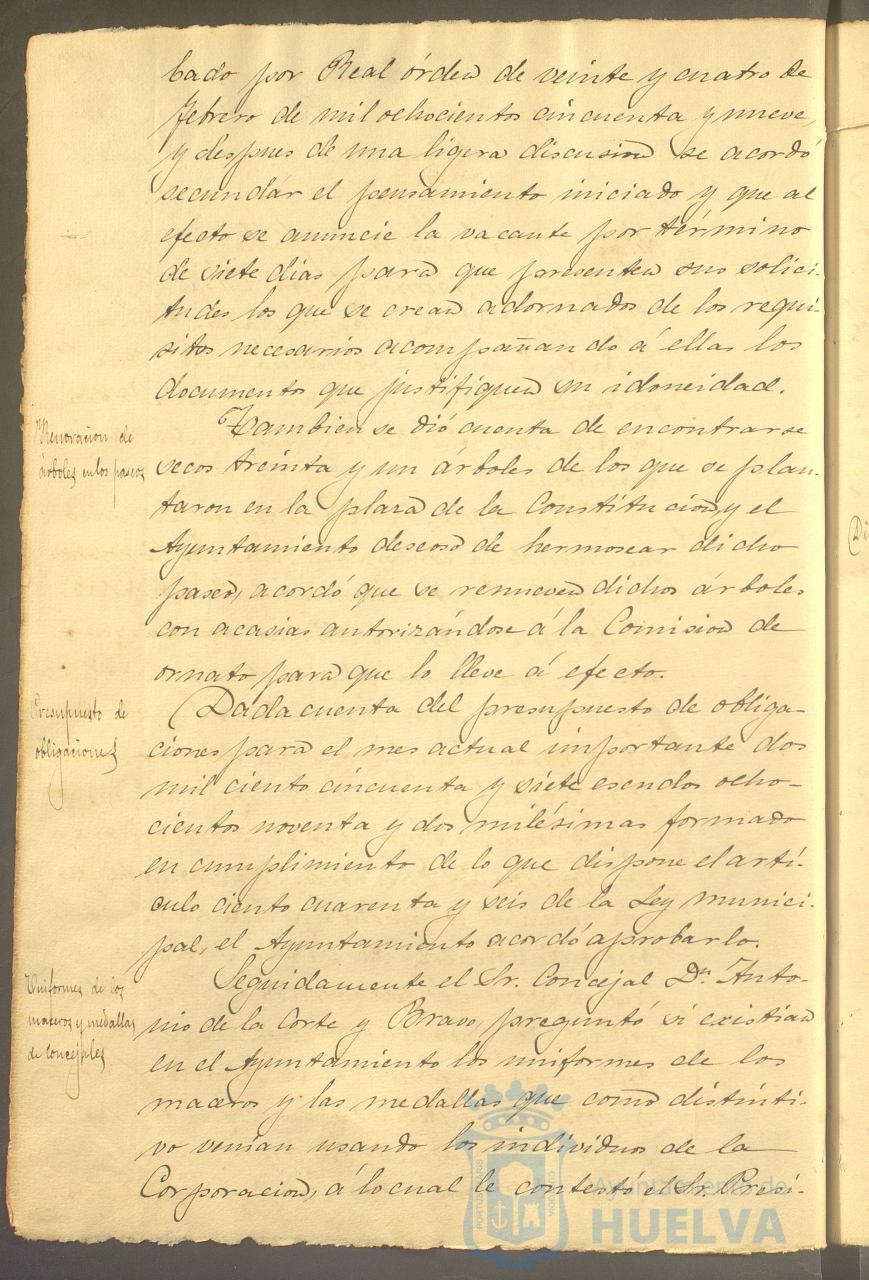 bado por Real órden de veinte y cuatro de
febrero de mil ochocientos cincuenta y nueve,
y despues de una ligera discusion se acordó
secundár el pensamiento iniciado y que al
efecto se anuncie la vacante por término
de siete dias para que presenten sus solici-
tudes los que se crean adornados de los requi-
sitos necesarios acompañando á ellas los
documento que justifiquen su idoneidad.
Renovacion de
árboles en los paseos
Tambien se dió cuenta de encontrarse
secos treinta y un árboles de los que se plan-
taron en la plaza de la Constitucion, y el
Ayuntamiento deseoso de hermosear dicho
paseo, acordó que se renueven dichos árboles
con acasias autorizándose á la Comision de
ornato para que lo lleve á efecto.
Presupuesto de
obligaciones
Dada cuenta del presupuesto de obliga-
ciones para el mes actual importante dos
mil ciento cincuenta y siete escudos ocho-
cientos noventa y dos milésimas formado
en cumplimiento de lo que dispone el artí-
culo ciento cuarenta y seis de la Ley munici-
pal, el Ayuntamiento acordó aprobarlo.
Uniformes de los
maceros y medallas
de Concejales
Seguidamente el Sr. Concejal Dn. Anto-
nio de la Corte y Bravo preguntó si existian
en el Ayuntamiento los uniformes de los
maceros y las medallas que como distinti-
vo venian usando los individuos de la
Corporacion, á lo cual le contestó el Sr. Presi-
Ayuntamiento de
HUELVA